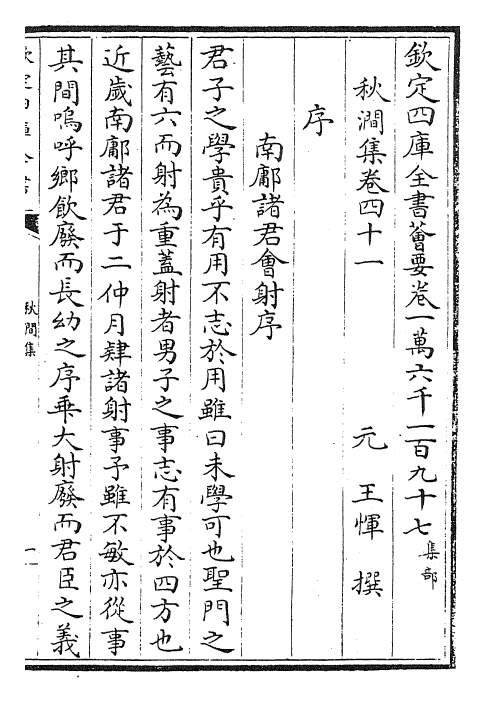 欽定四庫全書薈要卷一萬六千一百九十七集部
秋澗集卷四十一　元　王惲　撰
序
南鄘諸君會射序
君子之學貴乎有用不志於用雖曰未學可也聖門之
藝有六而射為重蓋射者男子之事志有事於四方也
近歲南鄘諸君于二仲月肄諸射事予雖不敏亦從事
其間嗚呼鄉飲廢而長幼之序乖大射廢而君臣之義
秋澗集
一